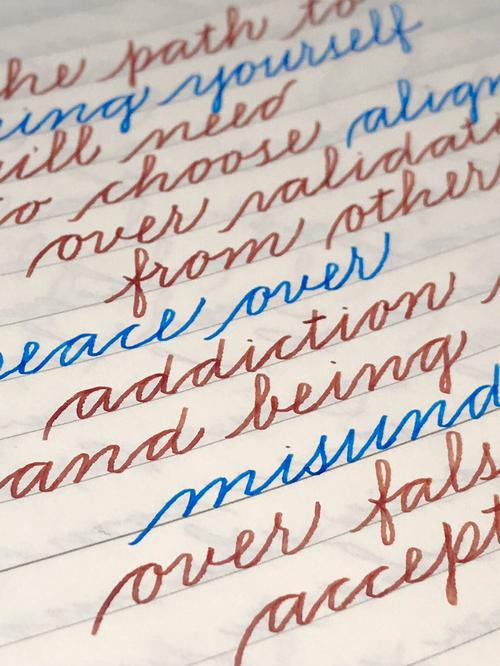 he path to
ing yourself
ill need
to choose align
over validati
from other
peace over
addiction
and being
misund
over fals
accept